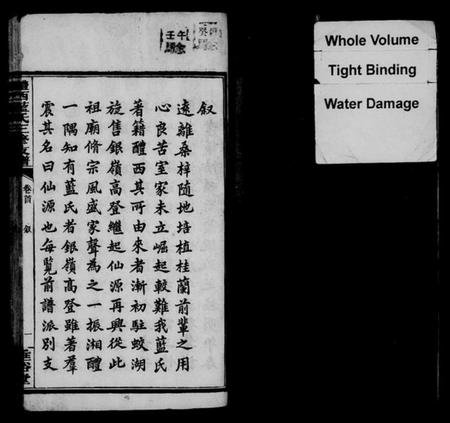 敘
遠離桑梓隨地培植桂蘭前輩之用
心良苦室家未立崛起較難我藍氏
著籍醴西其所由來者漸初駐蛟湖
旋售銀嶺高登繼起仙源再興從此
祖廟脩宗風盛家聲為之一振湘醴
一隅知有藍氏者銀嶺高登雖著羣
震其名曰仙源也每覽前譜派別支
醴西藍氏三修族譜
卷首
敘
一
Whole Volume
Tight Binding
Water Damage